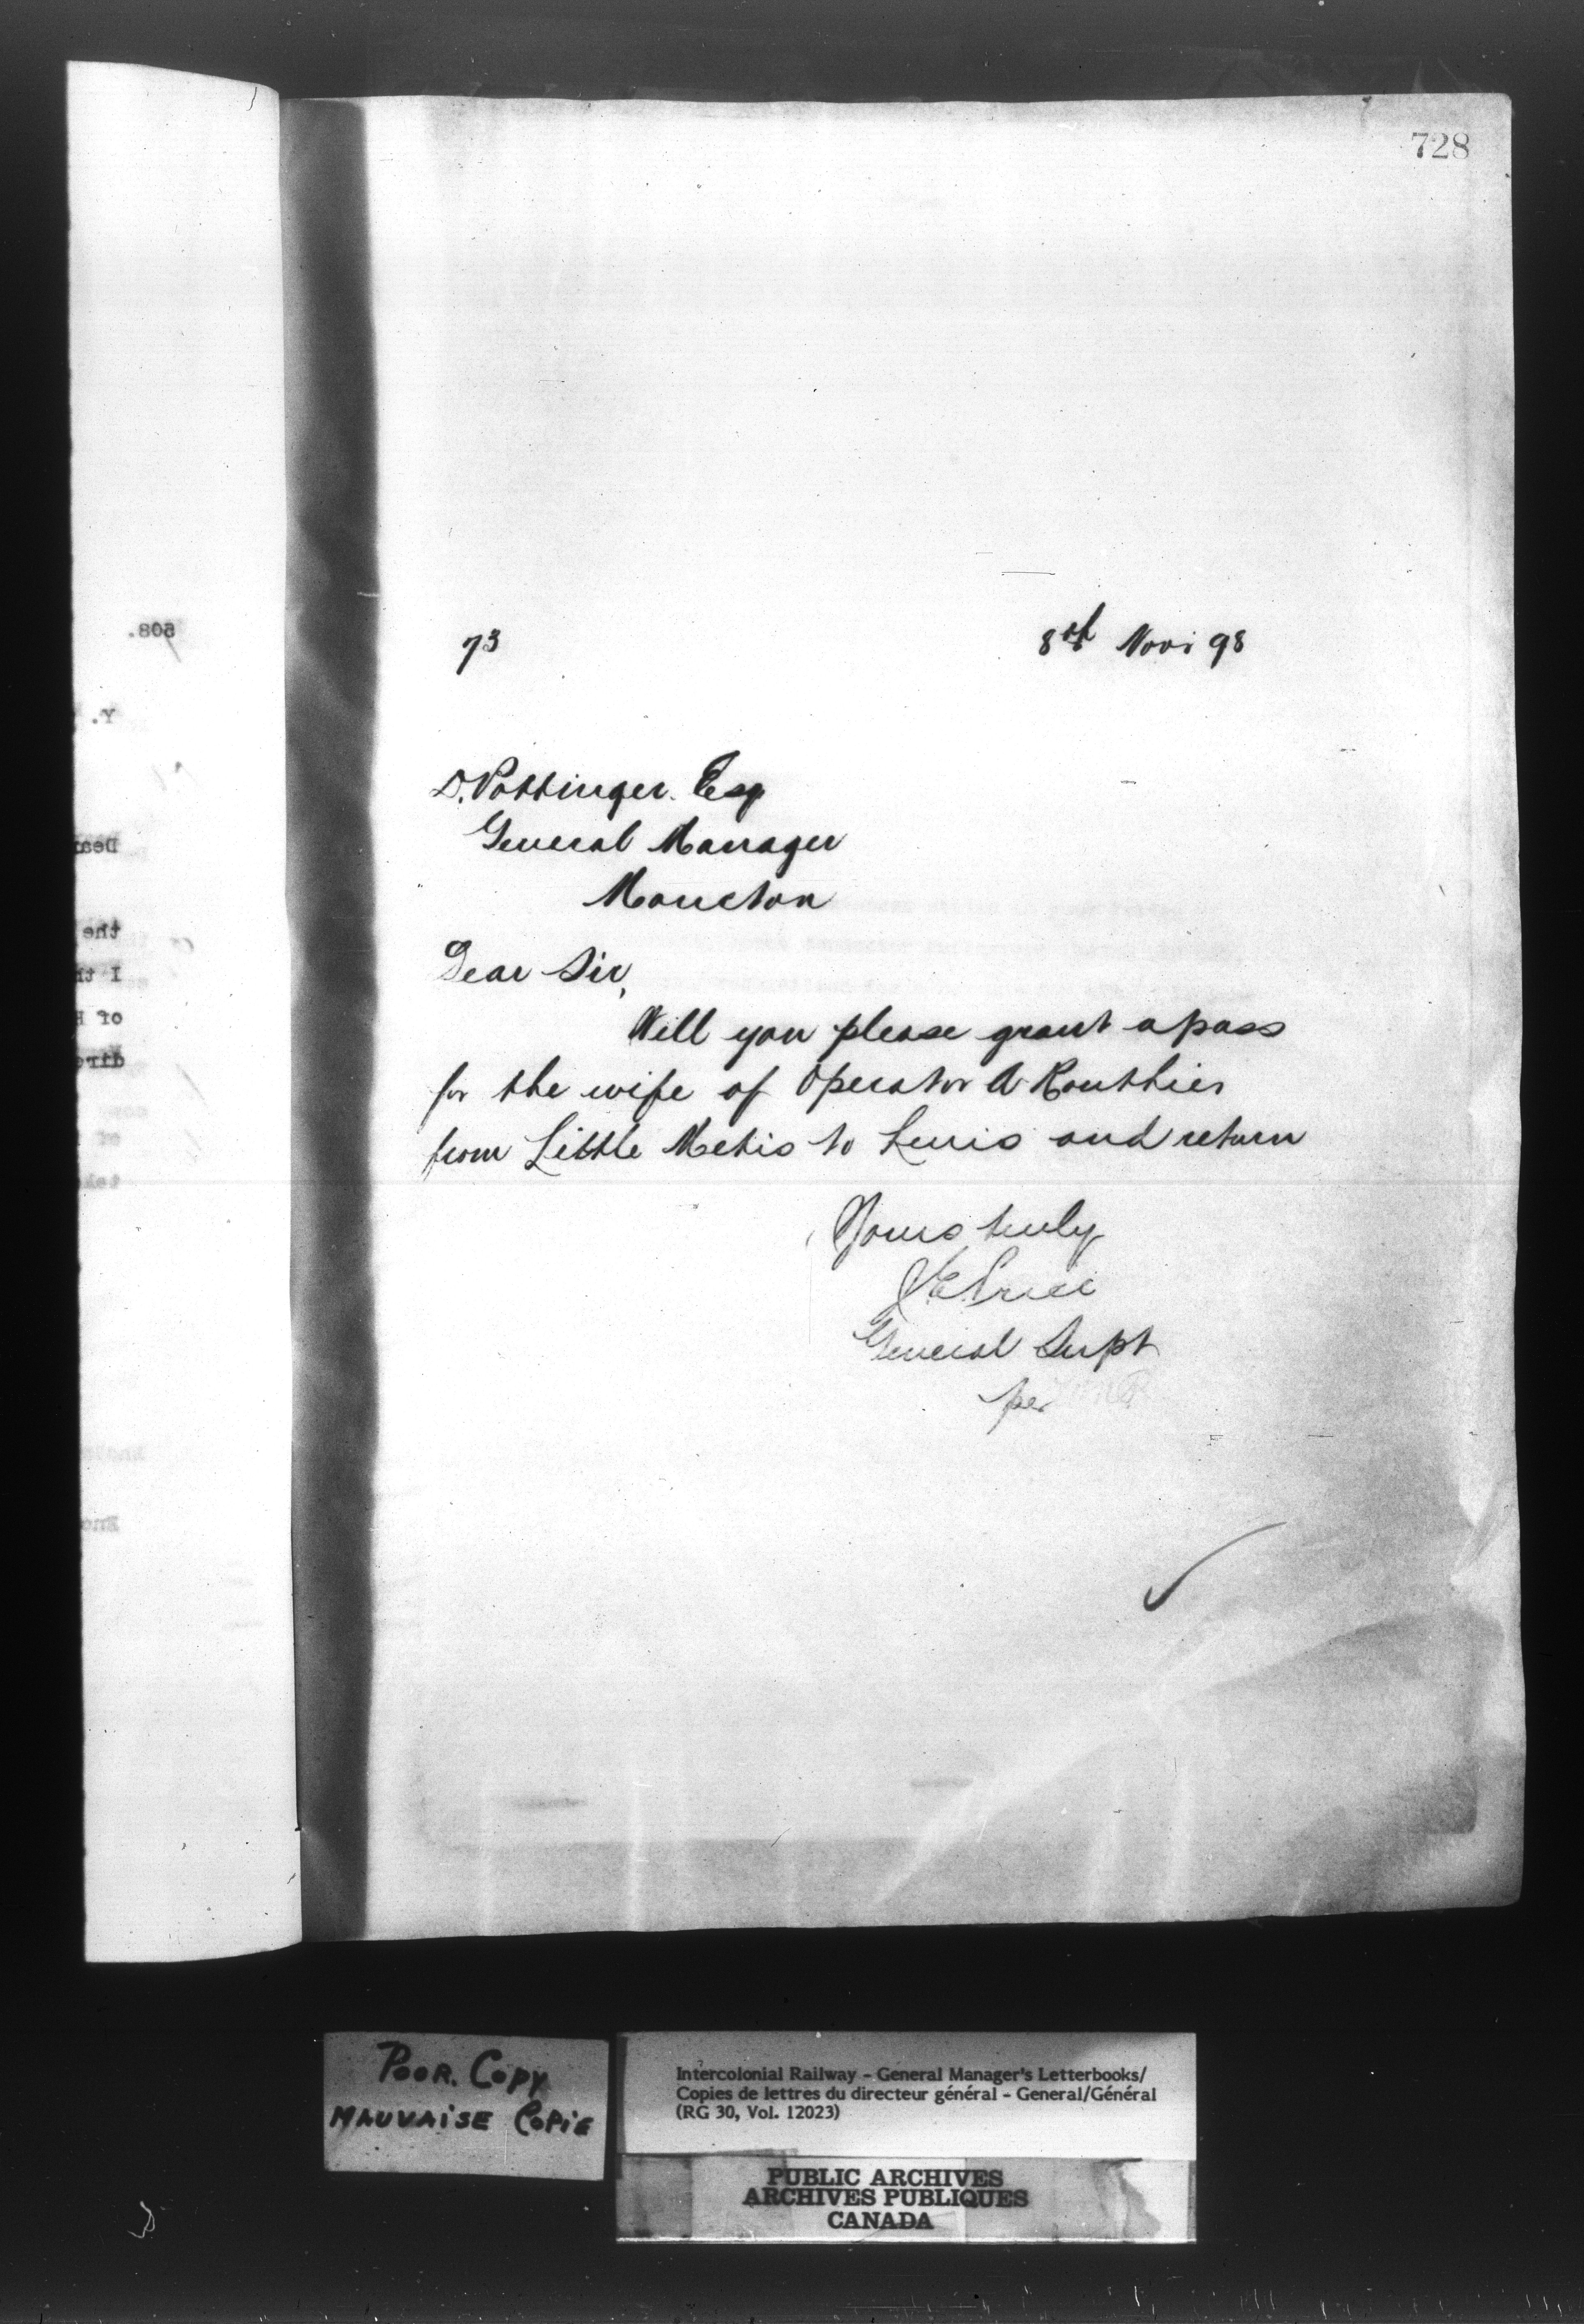 728
73
8th Nov 98
D. Pottinger. Esq
General Manager
Moncton
Dear Sir,
Will you please grant a pass
for the wife of Operator A Routhier
from Little Metis to Levis and return
Yours truly
J E Price
General Supt
per
508.
Y.
Dea
the
I th
of H
dire
tak
Enc
POOR. COPY
MAUVAISE COPIE
Intercolonial Railway – General Manager's Letterbooks/
Copies de lettres du directeur général – General/Général
(RG 30, Vol. 12023)
PUBLIC ARCHIVES
ARCHIVES PUBLIQUES
CANADA